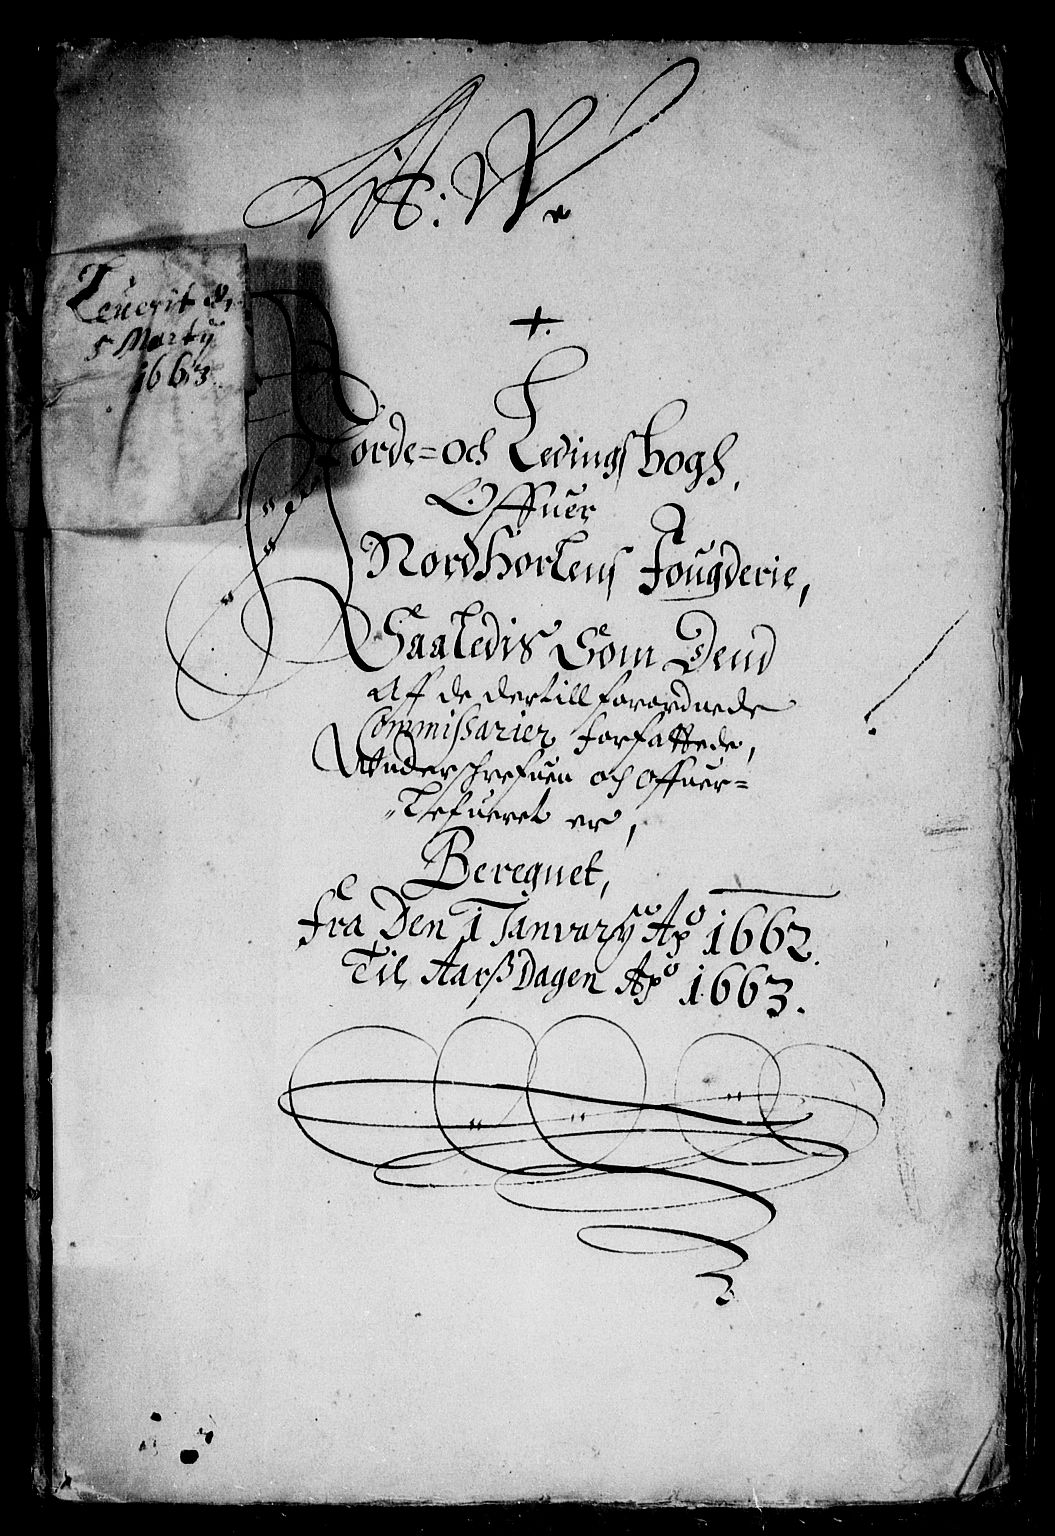 Lit: W.
Leuerit d.
5 Martij
1663.
Jorde= och Ledings bogh,
Offuer
Nordhorlens Fougderie,
Saaledis Som Dend
Aff de dertill forordnede
Commissarier forfattede,
Underschrefuen och offuer=
"Lefueret er,
Beregnet,
fra Den 1 Januarij Ao 1662.
Til Aarß Dagen Ao 1663.